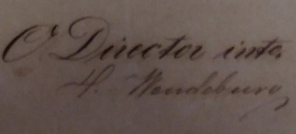 O Director inter.
H. Wendeburg